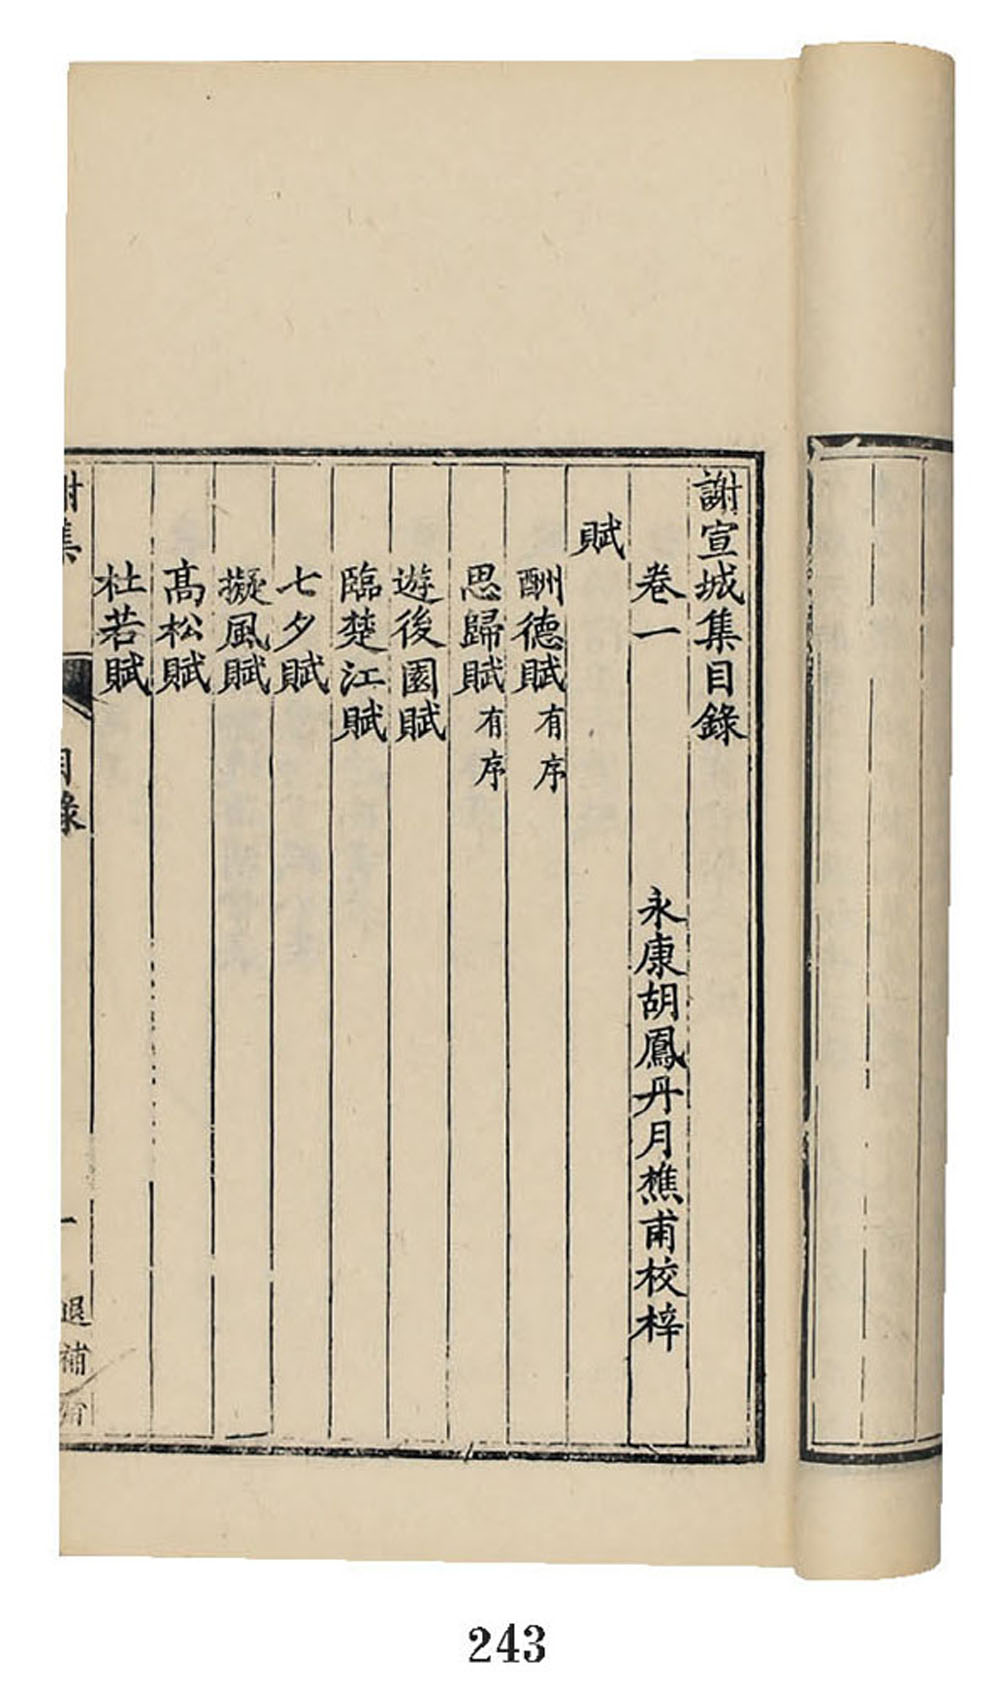 謝宣城集目錄
卷一　永康胡鳳丹月樵甫校梓
賦
酬德賦有序
思歸賦有序
遊後園賦
臨楚江賦
七夕賦
擬風賦
高松賦
杜若賦
謝集　目錄　一　退補齋
243